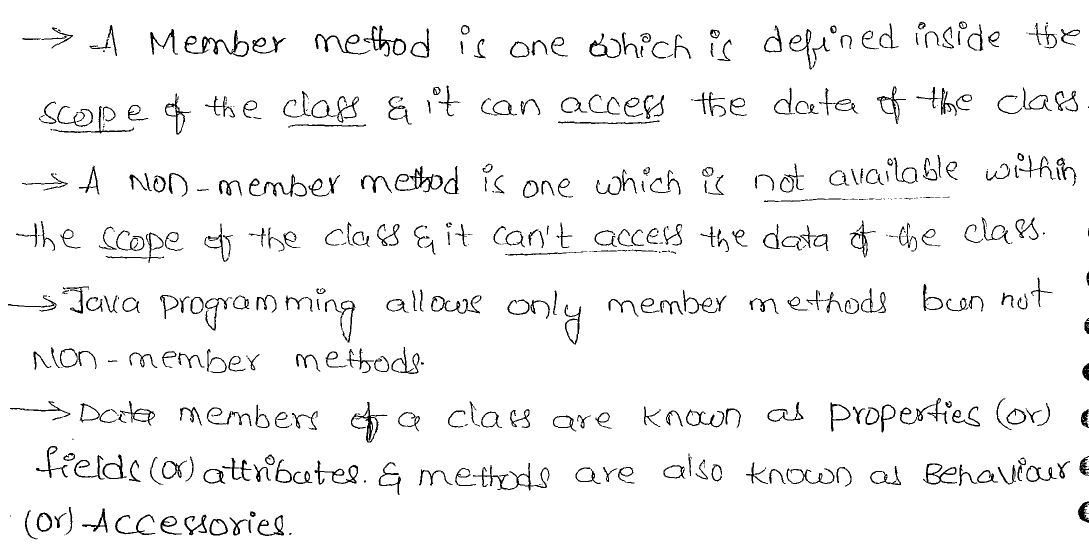 → A Member method is one which is defined inside the
scope of the class & it can access the data of the class.
→ A Non-member method is one which is not available within
the scope of the class & it can't access the data of the class.
→ Java programming allows only member methods bun not
Non-member methods.
→ Data members of a class are known as properties (or)
fields (or) attributes. & methods are also known as Behaviour
(or) Accessories.